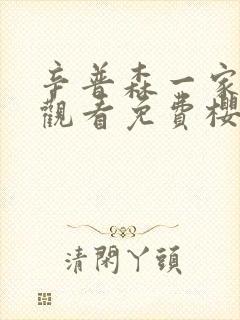 辛普森一家
觀看免費櫻
清閑丫頭